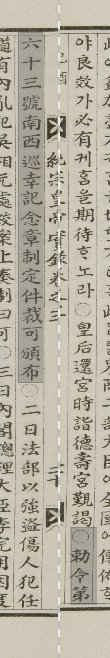 야良效가必有케ᄒᆞᆷ을期待ᄒᆞ노라○皇后還宮時詣德壽宮覲謁○勅令第
純宗皇帝實錄卷之三 二十
六十三號南西巡幸記念章制定件裁可頒布○二日法部以強盜傷人犯任
道有內亂犯吳相元處絞案上奏制曰可○三日內閣總理大臣李完用因度